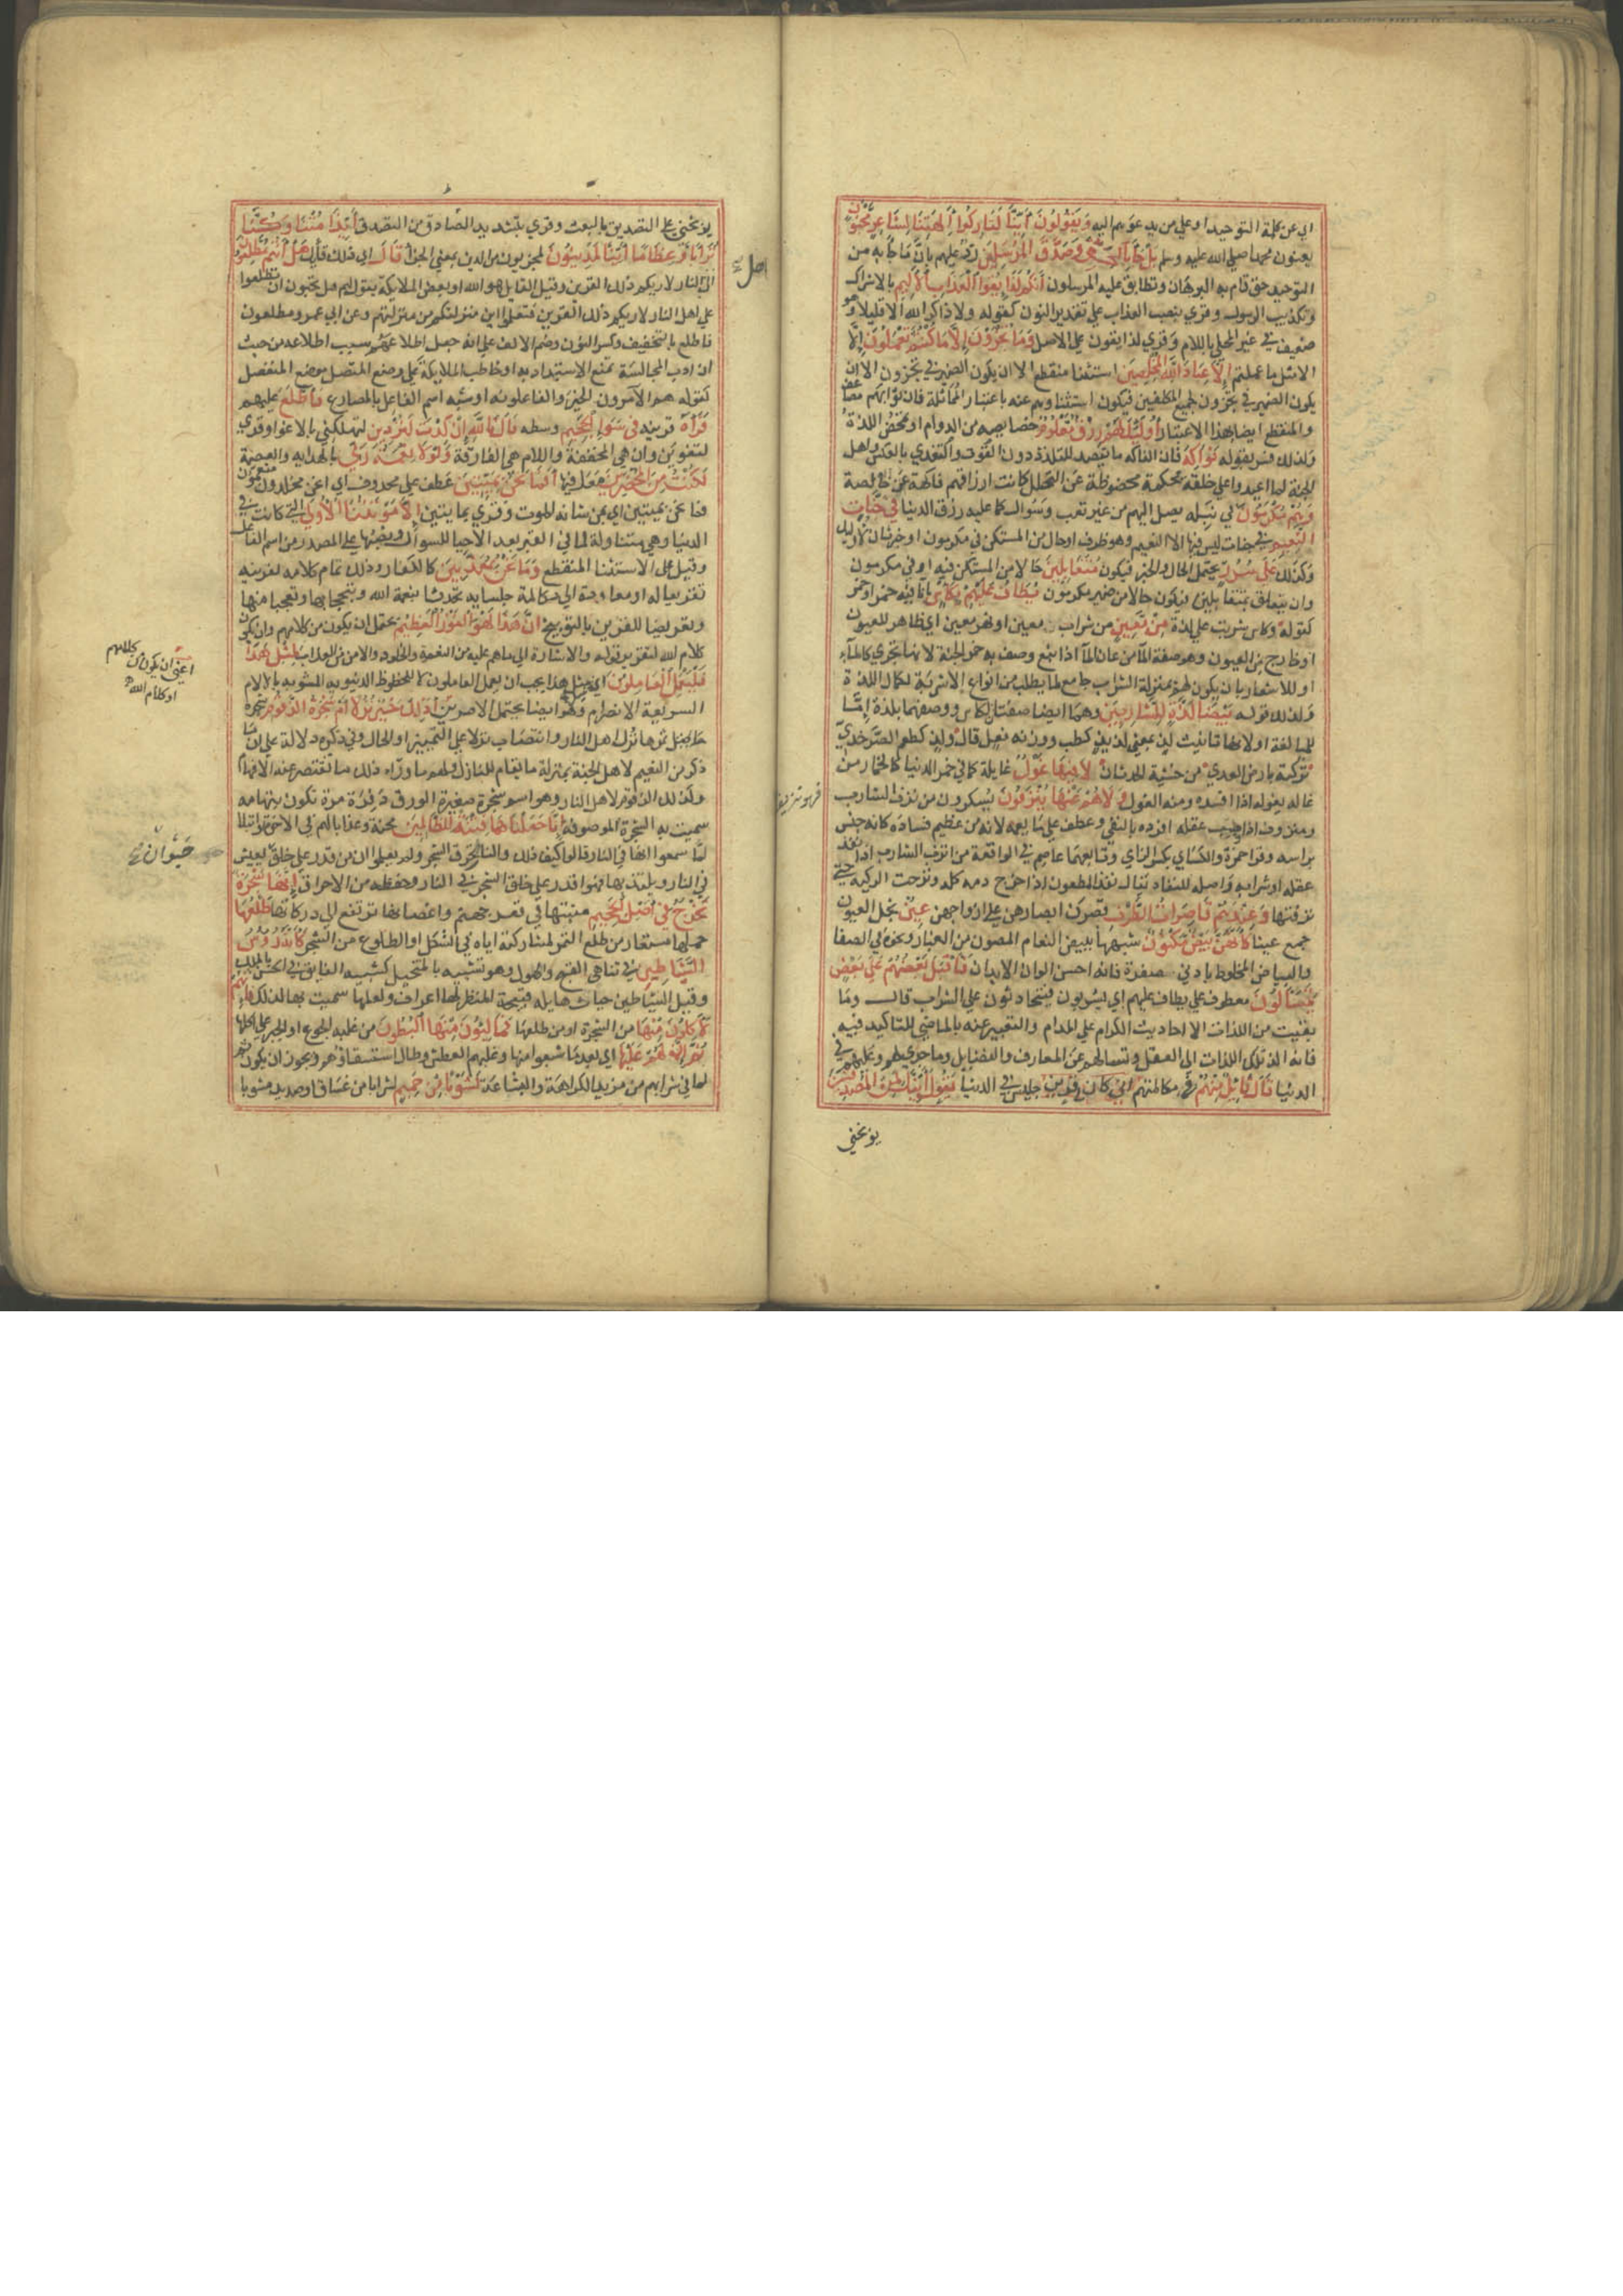 اي عن كلمة التوحيد او علي من يدعوهم اليه وَيَقُولُونَ أَئِنَّا لَتَارِكُوا آلِهَتِنَا لِشَاعِرٍ مَجْنُونٍ
يعنون محمدا صلي الله عليه وسلم بَلْ جَاءَ بِالْحَقِّ وَصَدَّقَ الْمُرْسَلِينَ رد عليهم بان ما جا به من
التوحيد حق قام به البرهان وتطابق عليه المرسلون إِنَّكُمْ لَذَائِقُوا الْعَذَابِ الْأَلِيمِ بالاشراك
وتكذيب الرسول وقري بنصب العذاب علي تقدير النون كقوله ولا ذاكر الله الا قليلا وهو
ضعيف في غير المحلي باللام وقري لذايقون علي الاصل وَمَا تُجْزَوْنَ إِلَّا مَا كُنْتُمْ تَعْمَلُونَ إلا
الا مثل ما عملتم إِلَّا عِبَادَ اللَّهِ الْمُخْلَصِينَ استثنا منقطع الا ان يكون الضمير في تجزون الا ان
يكون الضمير في تجزون لجميع المكلفين فيكون استثناوهم عنه باعتبار المماثلة فان ثوابهم مضاعف
والمنقطع ايضا بهذا الاعتبار أُولَئِكَ لَهُمْ رِزْقٌ مَعْلُومٌ خصايصه من الدوام او تمحض اللذة
ولذلك فسره بقوله فَوَاكِهُ فان الفاكهة ما يقصد للتلذذ دون القوت والتغذي بالعكس واهل
الجنة لما اعيدوا علي خلقة محكمة محفوظة عن التحلل كانت ارزاقهم فاكهة عن خالصة
وَهُمْ مُكْرَمُونَ في نيله يصل اليهم من غير تعب وسوال كما عليه رزق الدنيا فِي جَنَّاتِ
النَّعِيمِ في جنات ليس فيها الا النعيم وهو ظرف او حال من المستكن في مكرمون او خبر ثان لاوليك
وكذلك عَلَى سُرُرٍ يحتمل الحال والخبر فيكون مُتَقَابِلِينَ حالا من المستكن فيه او في مكرمون
وان يتعلق بمتقابلين فيكون حالا من ضمير مكرمون يُطَافُ عَلَيْهِمْ بِكَأْسٍ باناء فيه خمر او خمر
كقوله وكاس شربت علي لذة مِنْ مَعِينٍ من شراب معين او نهر معين اي ظاهر للعيون
او خارج من العيون وهو صفة الما من عان الما اذا نبع وصف به خمر الجنة لانها تجري كالماء
او للاشعار بان يكون لهم بمنزلة الشراب جامع لما يطلب من انواع الاشربة لكمال اللذة
وكذلك قوله بَيْضَاءَ لَذَّةٍ لِلشَّارِبِينَ وهما ايضا صفتان لكاس ووصفها بلذة اما
للمبالغة او لانها تانيث لذ بمعني لذيذ كطب ووزنه فعل قال ولذ كطعم الصرخدي
تركته بارض العدي من خشية الحدثان لَا فِيهَا غَوْلٌ غايلة كما في خمر الدنيا كالخمار من
غاله يغوله اذا افسده ومنه الغول وَلَا هُمْ عَنْهَا يُنْزَفُونَ يسكرون من نزف الشارب
ومنزوف اذا ذهب عقله افرده بالنفي وعطف علي ما يعمه لانه من عظيم فساده كانه جنس
براسه وقرا حمزة والكساي بكسر الزاي وتابعهما عاصم في الواقعة من انزف الشارب اذا نفد
عقله او شرابه واصله للنفاد يقال نفذ المطعون اذا خرج دمه كله ونزحت الركية حتي
نزفتها وَعِنْدَهُمْ قَاصِرَاتُ الطَّرْفِ قصرن ابصارهن علي ازواجهن عِينٌ نجل العيون
جمع عينا كَأَنَّهُنَّ بَيْضٌ مَكْنُونٌ شبههن ببيض النعام المصون من الغبار ونحوه في الصفا
والبياض المخلوط بادني صفرة فانه احسن الوان الابدان فَأَقْبَلَ بَعْضُهُمْ عَلَى بَعْضٍ
يَتَسَاءَلُونَ معطوف علي يطاف عليهم اي يشربون فيتحادثون علي الشراب قال وما
بقيت من اللذات الا احاديث الكرام علي المدام والتعبير عنه بالماضي للتاكيد فيه
فانه الذ تلك اللذات الي العقل وتسالهم عن المعارف والفضايل وما جري لهم وعليهم في
الدنيا قَالَ قَائِلٌ مِنْهُمْ في مكالمتهم إِنِّي كَانَ لِي قَرِينٌ جليس في الدنيا يَقُولُ أَئِنَّكَ لَمِنَ الْمُصَدِّقِينَ
يوبخني
فهو نزيف
يوبخني علي التصديق بالبعث وقري بتشديد الصاد من التصدق أَئِذَا مِتْنَا وَكُنَّا
تُرَابًا وَعِظَامًا أَئِنَّا لَمَدِينُونَ لمجزيون من الدين بمعني الجزا قَالَ اي ذلك القايل هَلْ أَنْتُمْ مُطَّلِعُونَ
اهل
الي النار لاريكم ذلك القرين وقيل القايل هو الله او بعض الملايكة يقول لهم هل تحبون ان تطلعوا
علي اهل النار لاريكم ذلك القرين فتعلموا اين منزلتكم من منزلتهم وعن ابي عمرو مطلعون
فاطلع بالتخفيف وكسر النون وضم الالف علي انه جعل اطلاعهم سبب اطلاعه من حيث
ان ادب المجالسة تمنع الاستبداد به او خاطب الملايكة علي وضع المتصل موضع المنفصل
كقوله هم الآمرون الخير والفاعلونه او شبه اسم الفاعل بالمضارع فَاطَّلَعَ عليهم
فَرَآهُ قرينه فِي سَوَاءِ الْجَحِيمِ وسطه قَالَ تَاللَّهِ إِنْ كِدْتَ لَتُرْدِينِ لتهلكني بالاغوا وقري
لتغوين وان هي المخففة واللام هي الفارقة وَلَوْلَا نِعْمَةُ رَبِّي بالهداية والعصمة
لَكُنْتُ مِنَ الْمُحْضَرِينَ معك فيها أَفَمَا نَحْنُ بِمَيِّتِينَ عطف علي محذوف اي انحن مخلدون منعمون
فما نحن بميتين اي بمن شانه الموت وقري بمايتين إِلَّا مَوْتَتَنَا الْأُولَى التي كانت في
الدنيا وهي متناولة لما في القبر بعد الاحيا للسوال ونصبها علي المصدر من اسم الفاعل
وقيل علي الاستثنا المنقطع وَمَا نَحْنُ بِمُعَذَّبِينَ كالكفار وذلك تمام كلامه لقرينه
تقريعا له او معاودة الي مكالمة جلسايه تحدثا بنعمة الله وتبجحا بها وتعجبا منها
وتعريضا للقرين بالتوبيخ إِنَّ هَذَا لَهُوَ الْفَوْزُ الْعَظِيمُ يحتمل ان يكون من كلامهم وان يكون
كلام الله لتقرير قوله والاشارة الي ما هم عليه من النعمة والخلود والامن من العذاب لِمِثْلِ هَذَا
اعني ان يكون من كلامهم
او كلام الله
فَلْيَعْمَلِ الْعَامِلُونَ اي لمثل هذا يجب ان يعمل العاملون لا للحظوظ الدنيوية المشوبة بالالام
السريعة الانصرام وهو ايضا يحتمل الامرين أَذَلِكَ خَيْرٌ نُزُلًا أَمْ شَجَرَةُ الزَّقُّومِ شجرة
ثمرها نزل اهل النار وانتصاب نزلا علي التمييز او الحال وفي ذكره دلالة علي ان ما
ذكر من النعيم لاهل الجنة بمنزلة ما يقام للنازل ولهم ما وراء ذلك ما تقتصر عنه الافهام
وكذلك الزقوم لاهل النار وهو اسم شجرة صغيرة الورق ذفرة مرة تكون بتهامة
سميت به الشجرة الموصوفة إِنَّا جَعَلْنَاهَا فِتْنَةً لِلظَّالِمِينَ محنة وعذابا لهم في الاخرة او ابتلا
لما سمعوا انها في النار قالوا كيف ذلك والنار تحرق الشجر ولم يعلموا ان من قدر علي خلق يعيش
حَيَوَانٍ صح
في النار ويلتذ بها فهو اقدر علي خلق الشجر في النار وحفظه من الاحراق إِنَّهَا شَجَرَةٌ
تَخْرُجُ فِي أَصْلِ الْجَحِيمِ منبتها في قعر جهنم واغصانها ترتفع الي دركاتها طَلْعُهَا
حملها مستعار من طلع التمر لمشاركته اياه في الشكل او الطلوع من الشجر كَأَنَّهُ رُءُوسُ
الشَّيَاطِينِ في تناهي القبح والهول وهو تشبيه بالمتخيل كتشبيه الفايق في الحسن بالملك
وقيل الشياطين حيات هايلة قبيحة المنظر لها اعراف ولعلها سميت بها لذلك فَإِنَّهُمْ
لَآكِلُونَ مِنْهَا من الشجرة او من طلعها فَمَالِئُونَ مِنْهَا الْبُطُونَ من غلبة الجوع او الجبر علي اكلها
ثُمَّ إِنَّ لَهُمْ عَلَيْهَا اي بعد ما شبعوا منها وغلبهم العطش وطال استسقاؤهم ويجوز ان يكون ثم
لما في شرابهم من مزيد الكراهة والبشاعة لَشَوْبًا مِنْ حَمِيمٍ لشرابا من غساق او صديد مشوبا